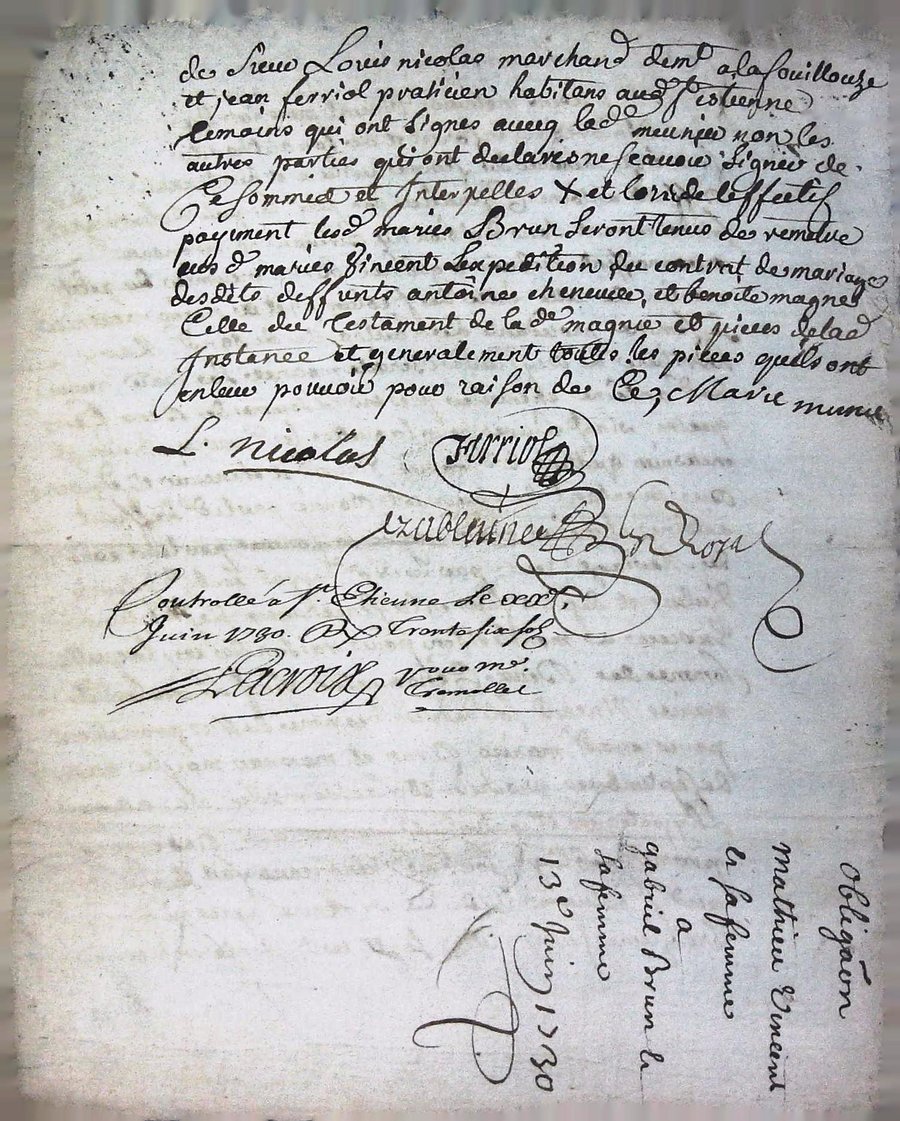 de Sieur Louis nicolas marchand demt a la fouillouze
et jean ferriol praticien habitans aud St estienne
temoins qui ont signes avecq lade meunier non les
autres parties qui ont declarés ne scavoir signer de
Ce sommes et Interpelles X et lors de leffectif
payment lesd maries Brun seront tenus de remettre
ausd maries Vincent lexpedition du contrat de mariage
desdits deffunts antoine cheneviee, et benoite magnet
Celle du Testament de la de magnie et pieces de lad
Instance et generalement touttes les pieces quils ont
en leur pouvoir pour raison de Ce,
L. nicolas
ferriol
Controllé à St Etienne le
Juin 1730. Trente six sols
Lacroix
Obligaōn
Mathieu Vincent
et sa femme
a
gabriel Brun et
sa femme
13e Juin 1730